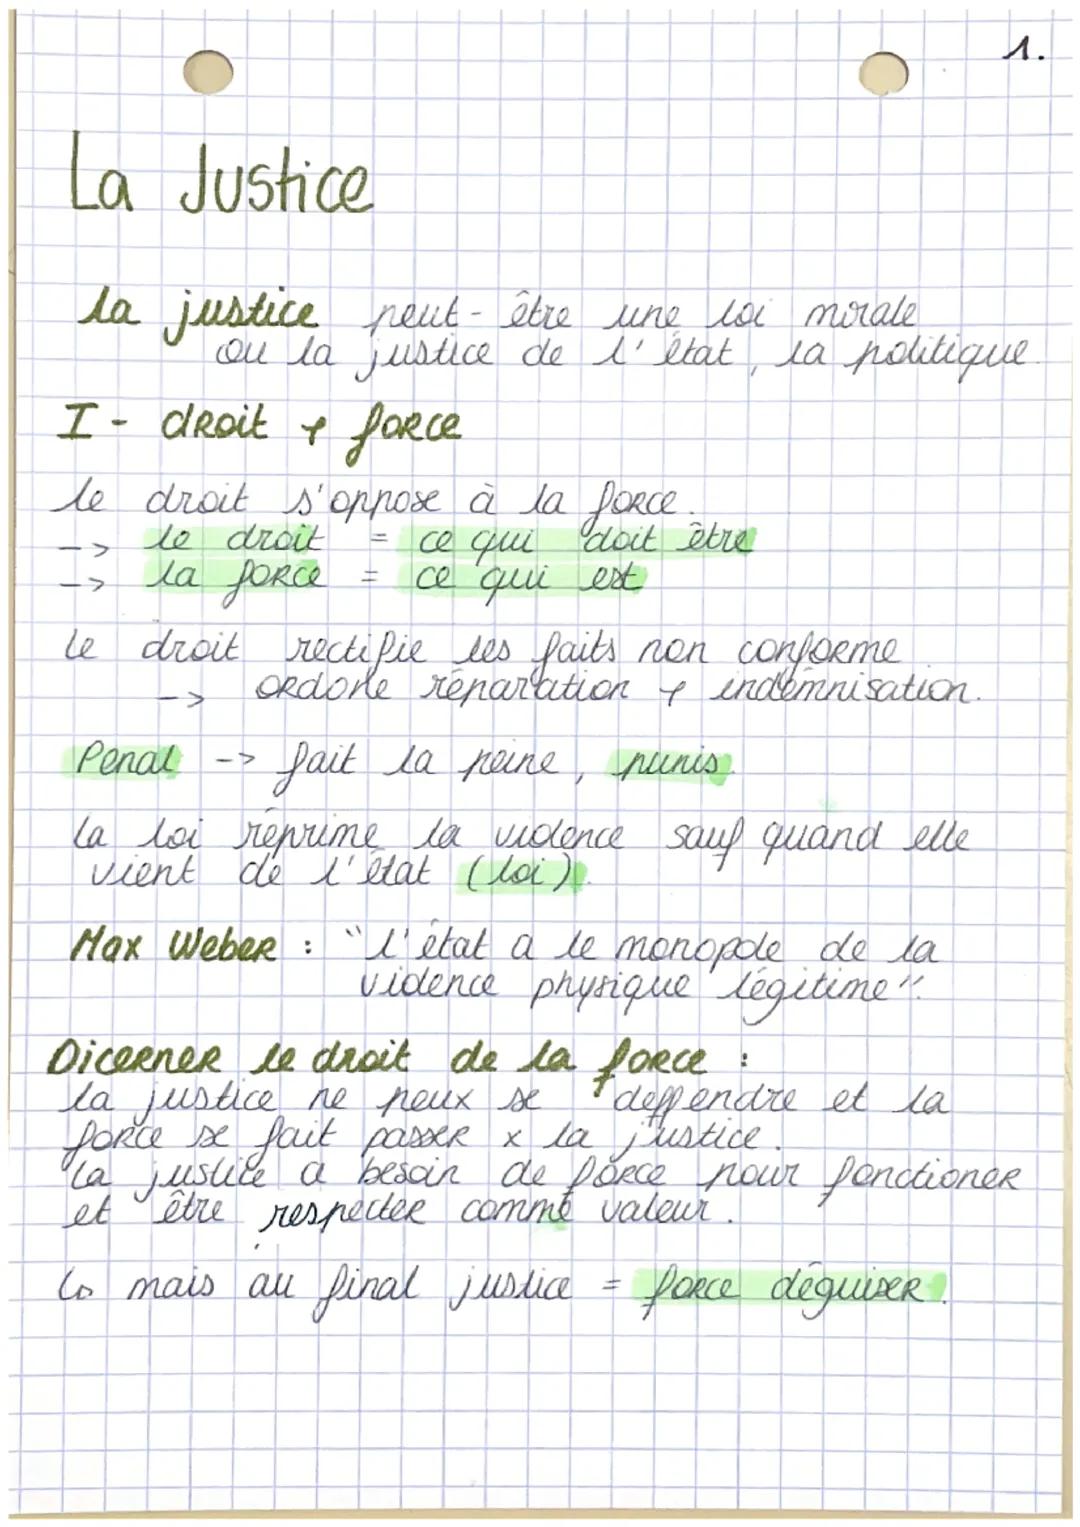 1.
La Justice
la justice peut-être une loi morale
ou la justice de l'état, la politique.
I - droit + force
le droit s'oppose à la force.
--> le droit = ce qui doit être
--> la force = ce qui est
le droit rectifie les faits non conforme
--> ordone réparation + indemnisation.
Penal --> fait la peine, punis.
la loi réprime la violence sauf quand elle
vient de l'état (loi).
Max Weber : "l'état a le monopole de la
violence physique légitime".
Dicerner le droit de la force :
la justice ne peux se deffendre et la
force se fait passer x la justice.
la justice a besoin de force pour fonctioner
et être respecter comme valeur.
↳ mais au final justice = force déguiser.